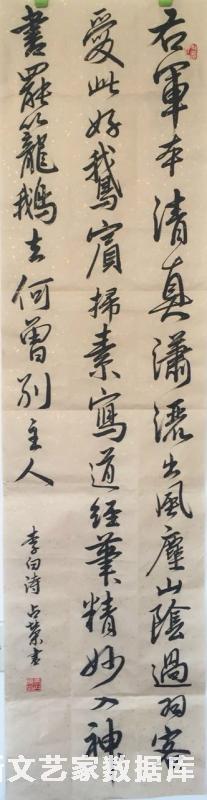 右軍本清真瀟灑出風塵山陰過羽客
愛此好鵝賓掃素寫道經筆精妙入神
書罷籠鵝去何曾別主人
李白詩 占榮書
文艺家数据库